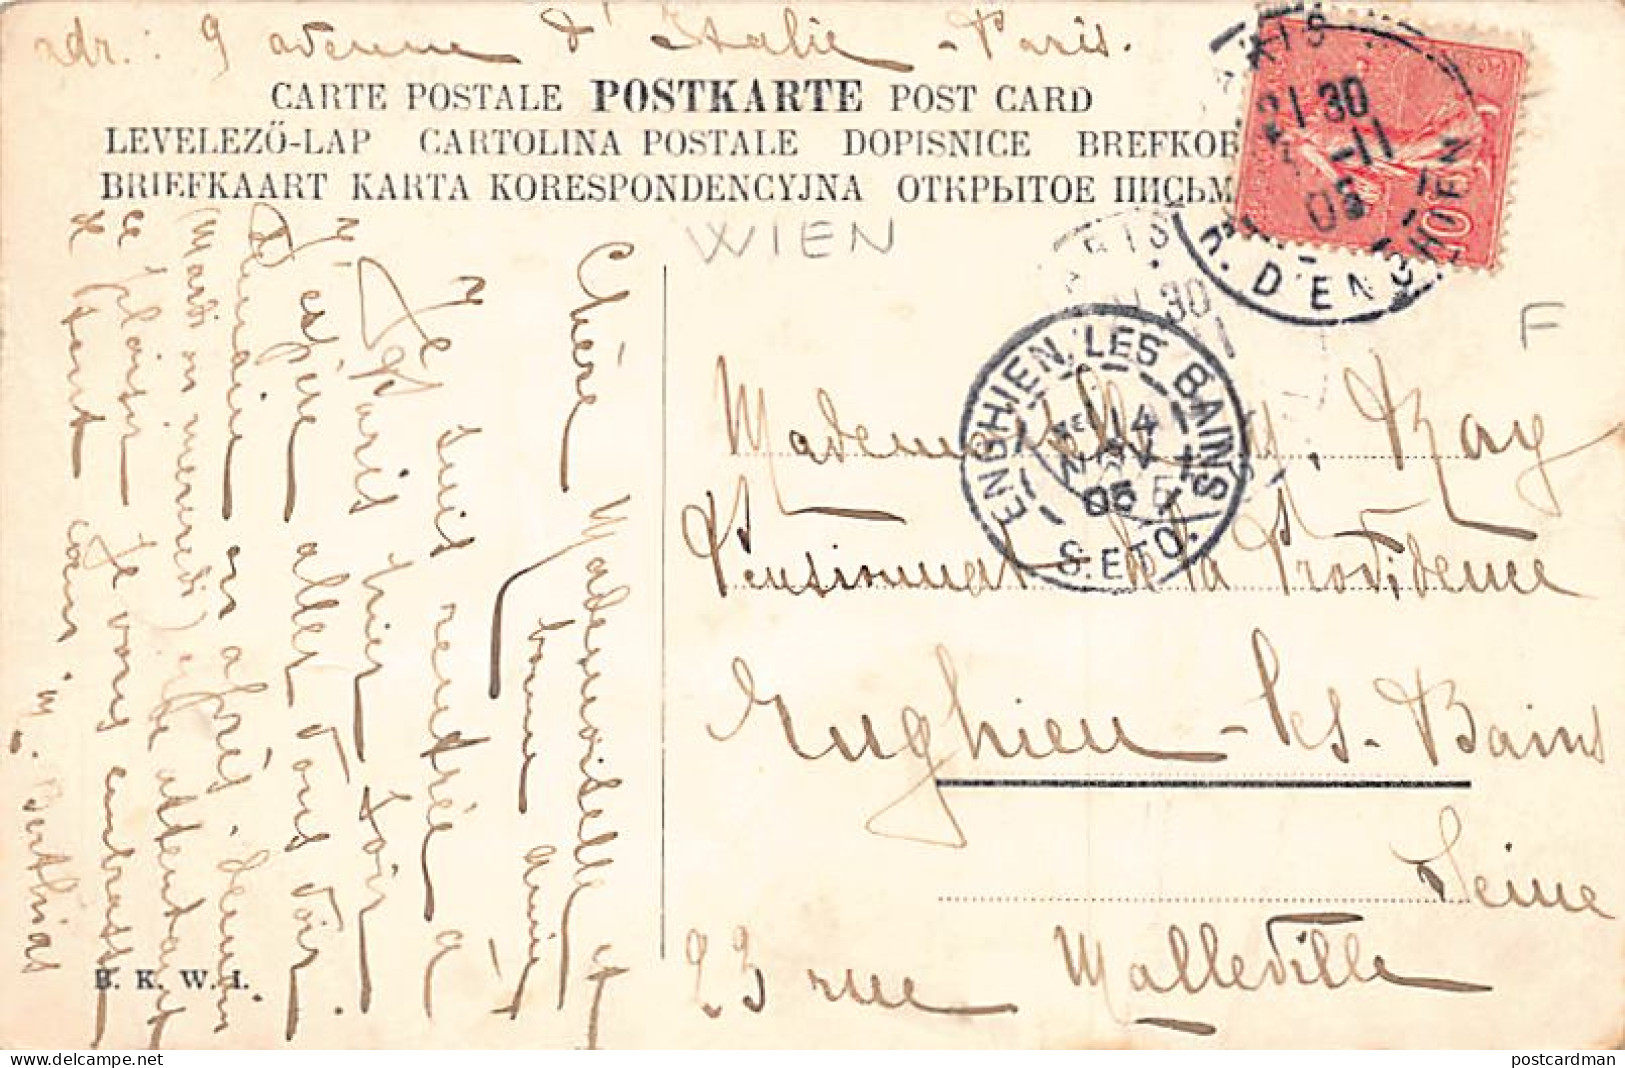 adr.: 9 avenue d'Italie - Paris.
CARTE POSTALE POSTKARTE POST CARD
LEVELEZŐ-LAP CARTOLINA POSTALE DOPISNICE BREFKOR
BRIEFKAART KARTA KORESPONDENCYJNA ОТКРЫТОЕ ПИСЬМ
WIEN
F
PARIS
1 30
-11
05
R. D'ENGHIEN
10
ARIS
30
11
ENGHIEN LES BAINS
14
NOV
05
S. ET O.
Mademoiselle Ray
Pensionnat de la Providence
Enghien-les-Bains
Seine
23 rue Malleville
Chère Mademoiselle et
bonne amie
Je suis rentrée à
Paris hier soir
J'espère aller vous voir
Demain ou après demain
Mardi ou mercredi) et de attendant
ce plaisir je vous embrasse
de tout cœur M. Berthias
B. K. W. I.
postcardman